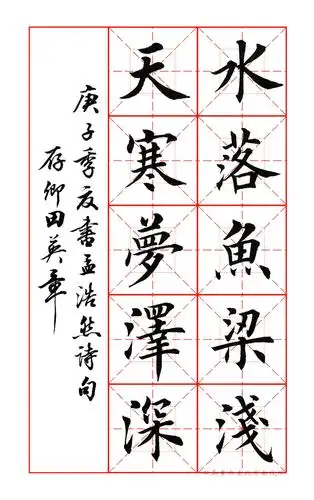 水落魚梁淺
天寒夢澤深
庚子季夏書孟浩然詩句
存卿田英章